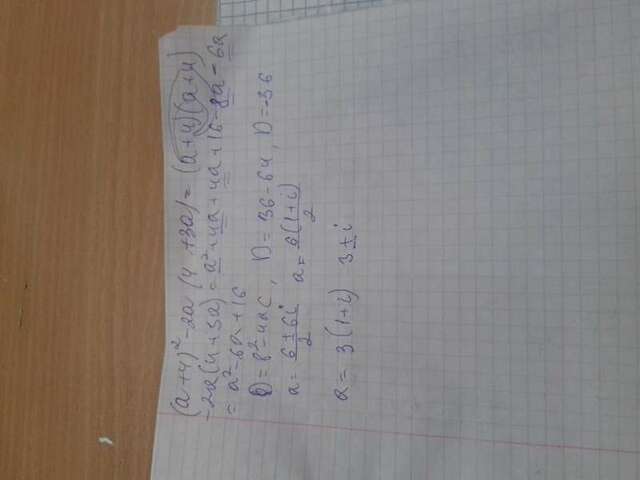 (a+4)² - 2a (4 + 3a) = (a+4)(a+4)
- 2a(4+3a) = a² + 4a + 4a + 16 - 8a - 6a
= a² - 6a + 16
D = b² - 4ac, D = 36 - 64, D = -36
a = (6 ± 6i)/2 a = 6(1+i)/2
a = 3(1+i) 3 ± i